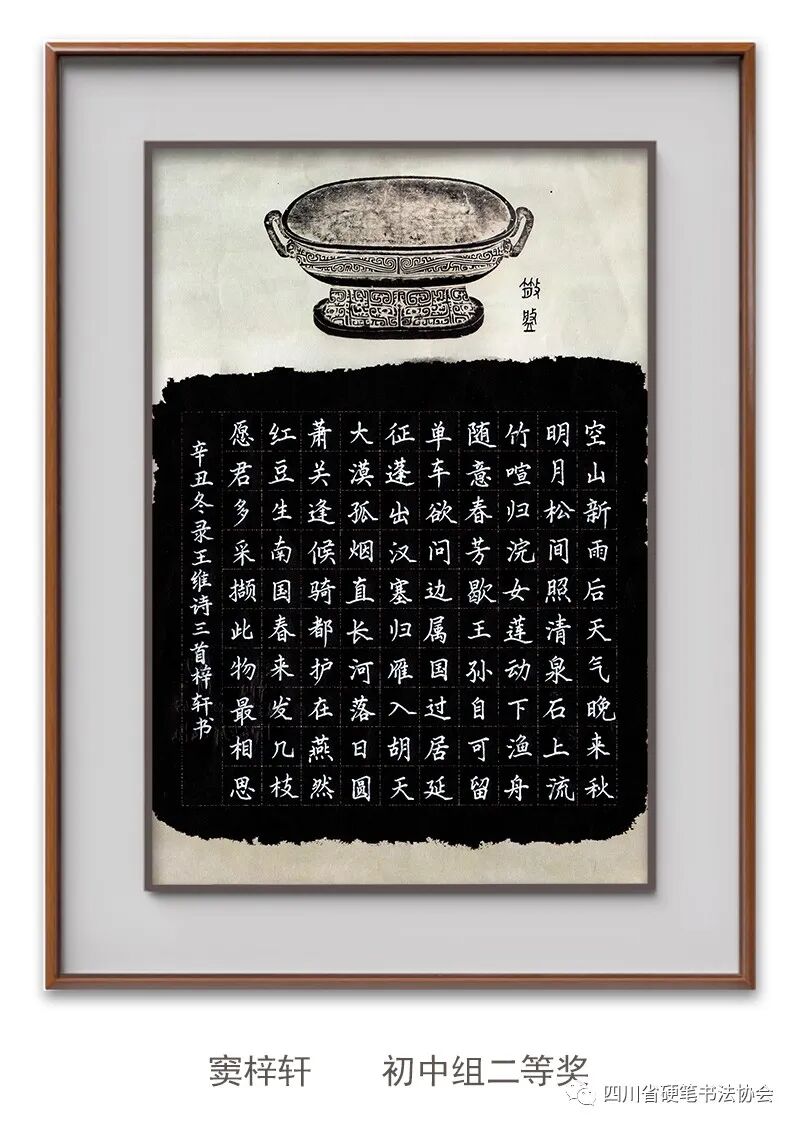 空山新雨后天气晚来秋
明月松间照清泉石上流
竹喧归浣女莲动下渔舟
随意春芳歇王孙自可留
单车欲问边属国过居延
征蓬出汉塞归雁入胡天
大漠孤烟直长河落日圆
萧关逢候骑都护在燕然
红豆生南国春来发几枝
愿君多采撷此物最相思
辛丑冬录王维诗三首梓轩书
窦梓轩 初中组二等奖
四川省硬笔书法协会